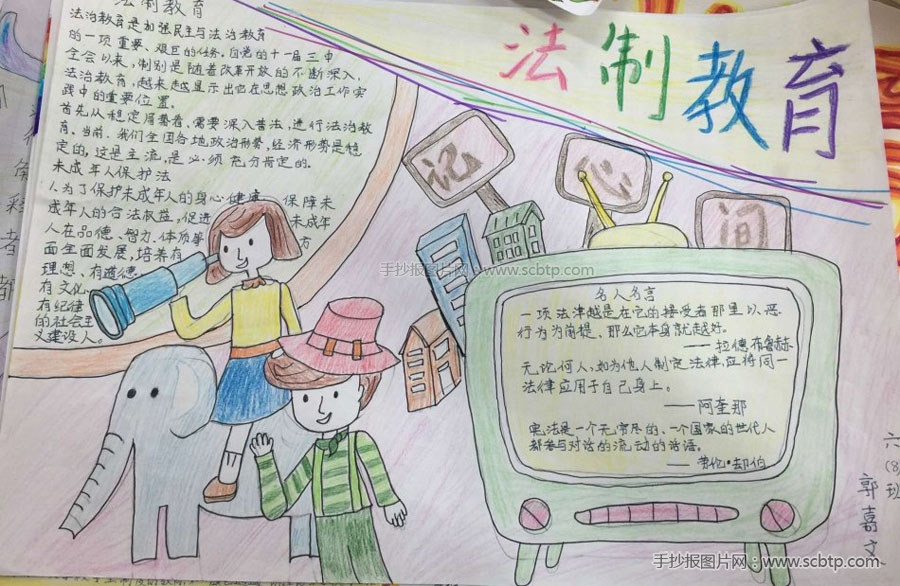 法制教育
法制教育
法治教育是加强民主与法治教育
的一项重要、艰巨的任务。自党的十一届三中
全会以来,制别是随着改革开放的不断深入,
法治教育,越来越显示出它在思想政治工作实
践中的重要位置。
首先从稳定居着看,需要深入普法,进行法治教
育。当前,我们全国各地政治形势,经济形势是稳
定的,这是主流,是必须充分肯定的。
未成年人保护法
人为了保护未成年人的身心健康 保障未
成年人的合法权益,促进 未成年
人在品德、智力、体质等 方
面全面发展,培养有
理想、有道德、
有文化、
有纪律
的社会主
义建设人。
记
心
间
名人名言
一项法津越是在它的接受者那里以恶
行为为前提、那么它本身就越好。
——拉德布鲁赫
无论何人,如为他人制定法律,应将同一
法律应用于自己身上。
——阿奎那
宪法是一个无穷尽的、一个国家的世代人
都参与对话的流动的话语。
——劳伦·却伯
六
(8)
班
郭嘉文
手抄报图片网:www.scbtp.com
手抄报图片网:www.scbtp.com